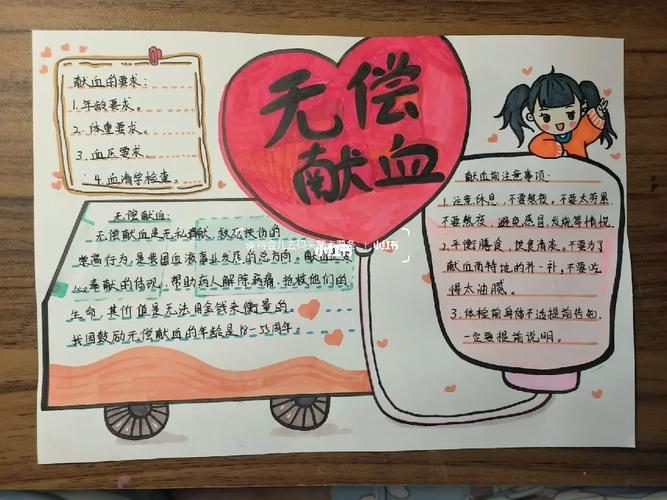 无偿
献血
献血的要求：
1.年龄要求。
2.体重要求。
3.血压要求。
4.血清学检查。
无偿献血：
无偿献血是无私奉献、救死扶伤的
崇高行为，是我国血液事业发展的总方向。献血
奉献的体现，帮助病人解除病痛，抢救他们的
生命，其价值是无法用金钱来衡量的。
我国鼓励无偿献血的年龄是18-55周岁。
献血前注意事项：
1.注意休息，不要熬夜。不要太劳累、
不要熬夜，避免感冒、发烧等情况。
2.平衡膳食，饮食清淡。不要为了
献血而特地的补一补，不要吃
得太油腻。
3.体检前身体不适提前告知，
一定要提前说明。
小红书